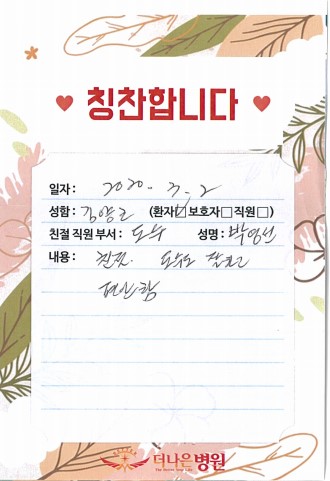 칭찬합니다
일자 : 2020. 3. 2
성함 : 김양로 (환자☑ 보호자☐ 직원☐)
친절 직원 부서 : 도수 성명 : 박영선
내용 : 친절. 도수도 잘하고
편안함
더나은병원